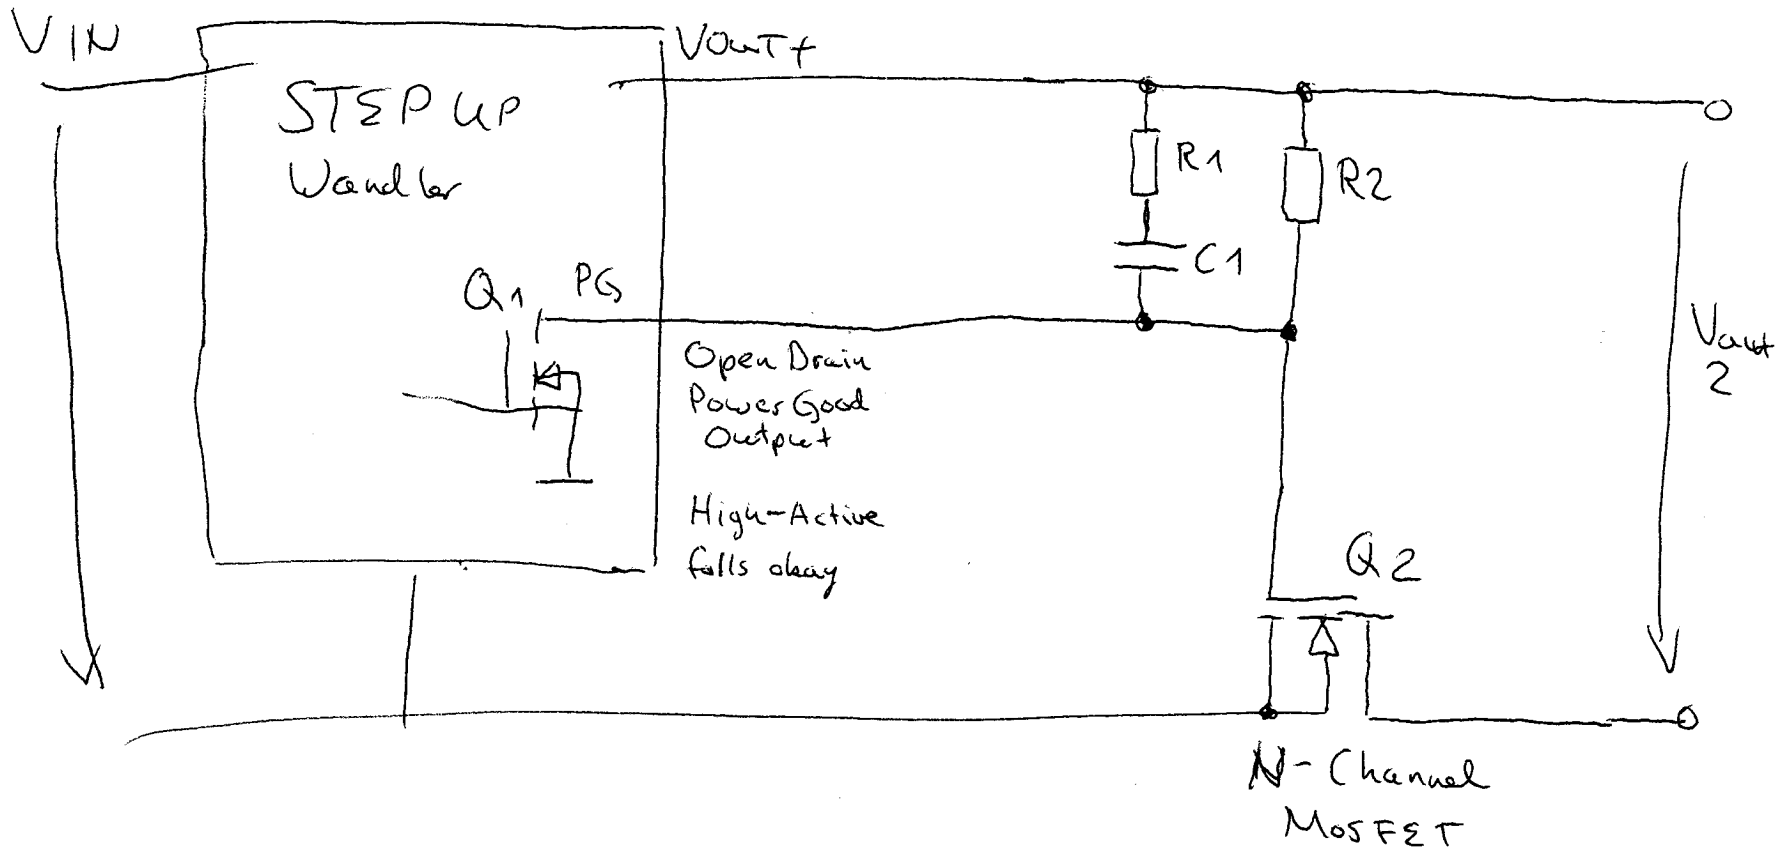 VIN
VOUT+
STEP UP
Wandler
R1
R2
C1
Q1
PG
Open Drain
Power Good
Output
High-Active
falls okay
Vout
2
Q2
N-Channel
MOSFET